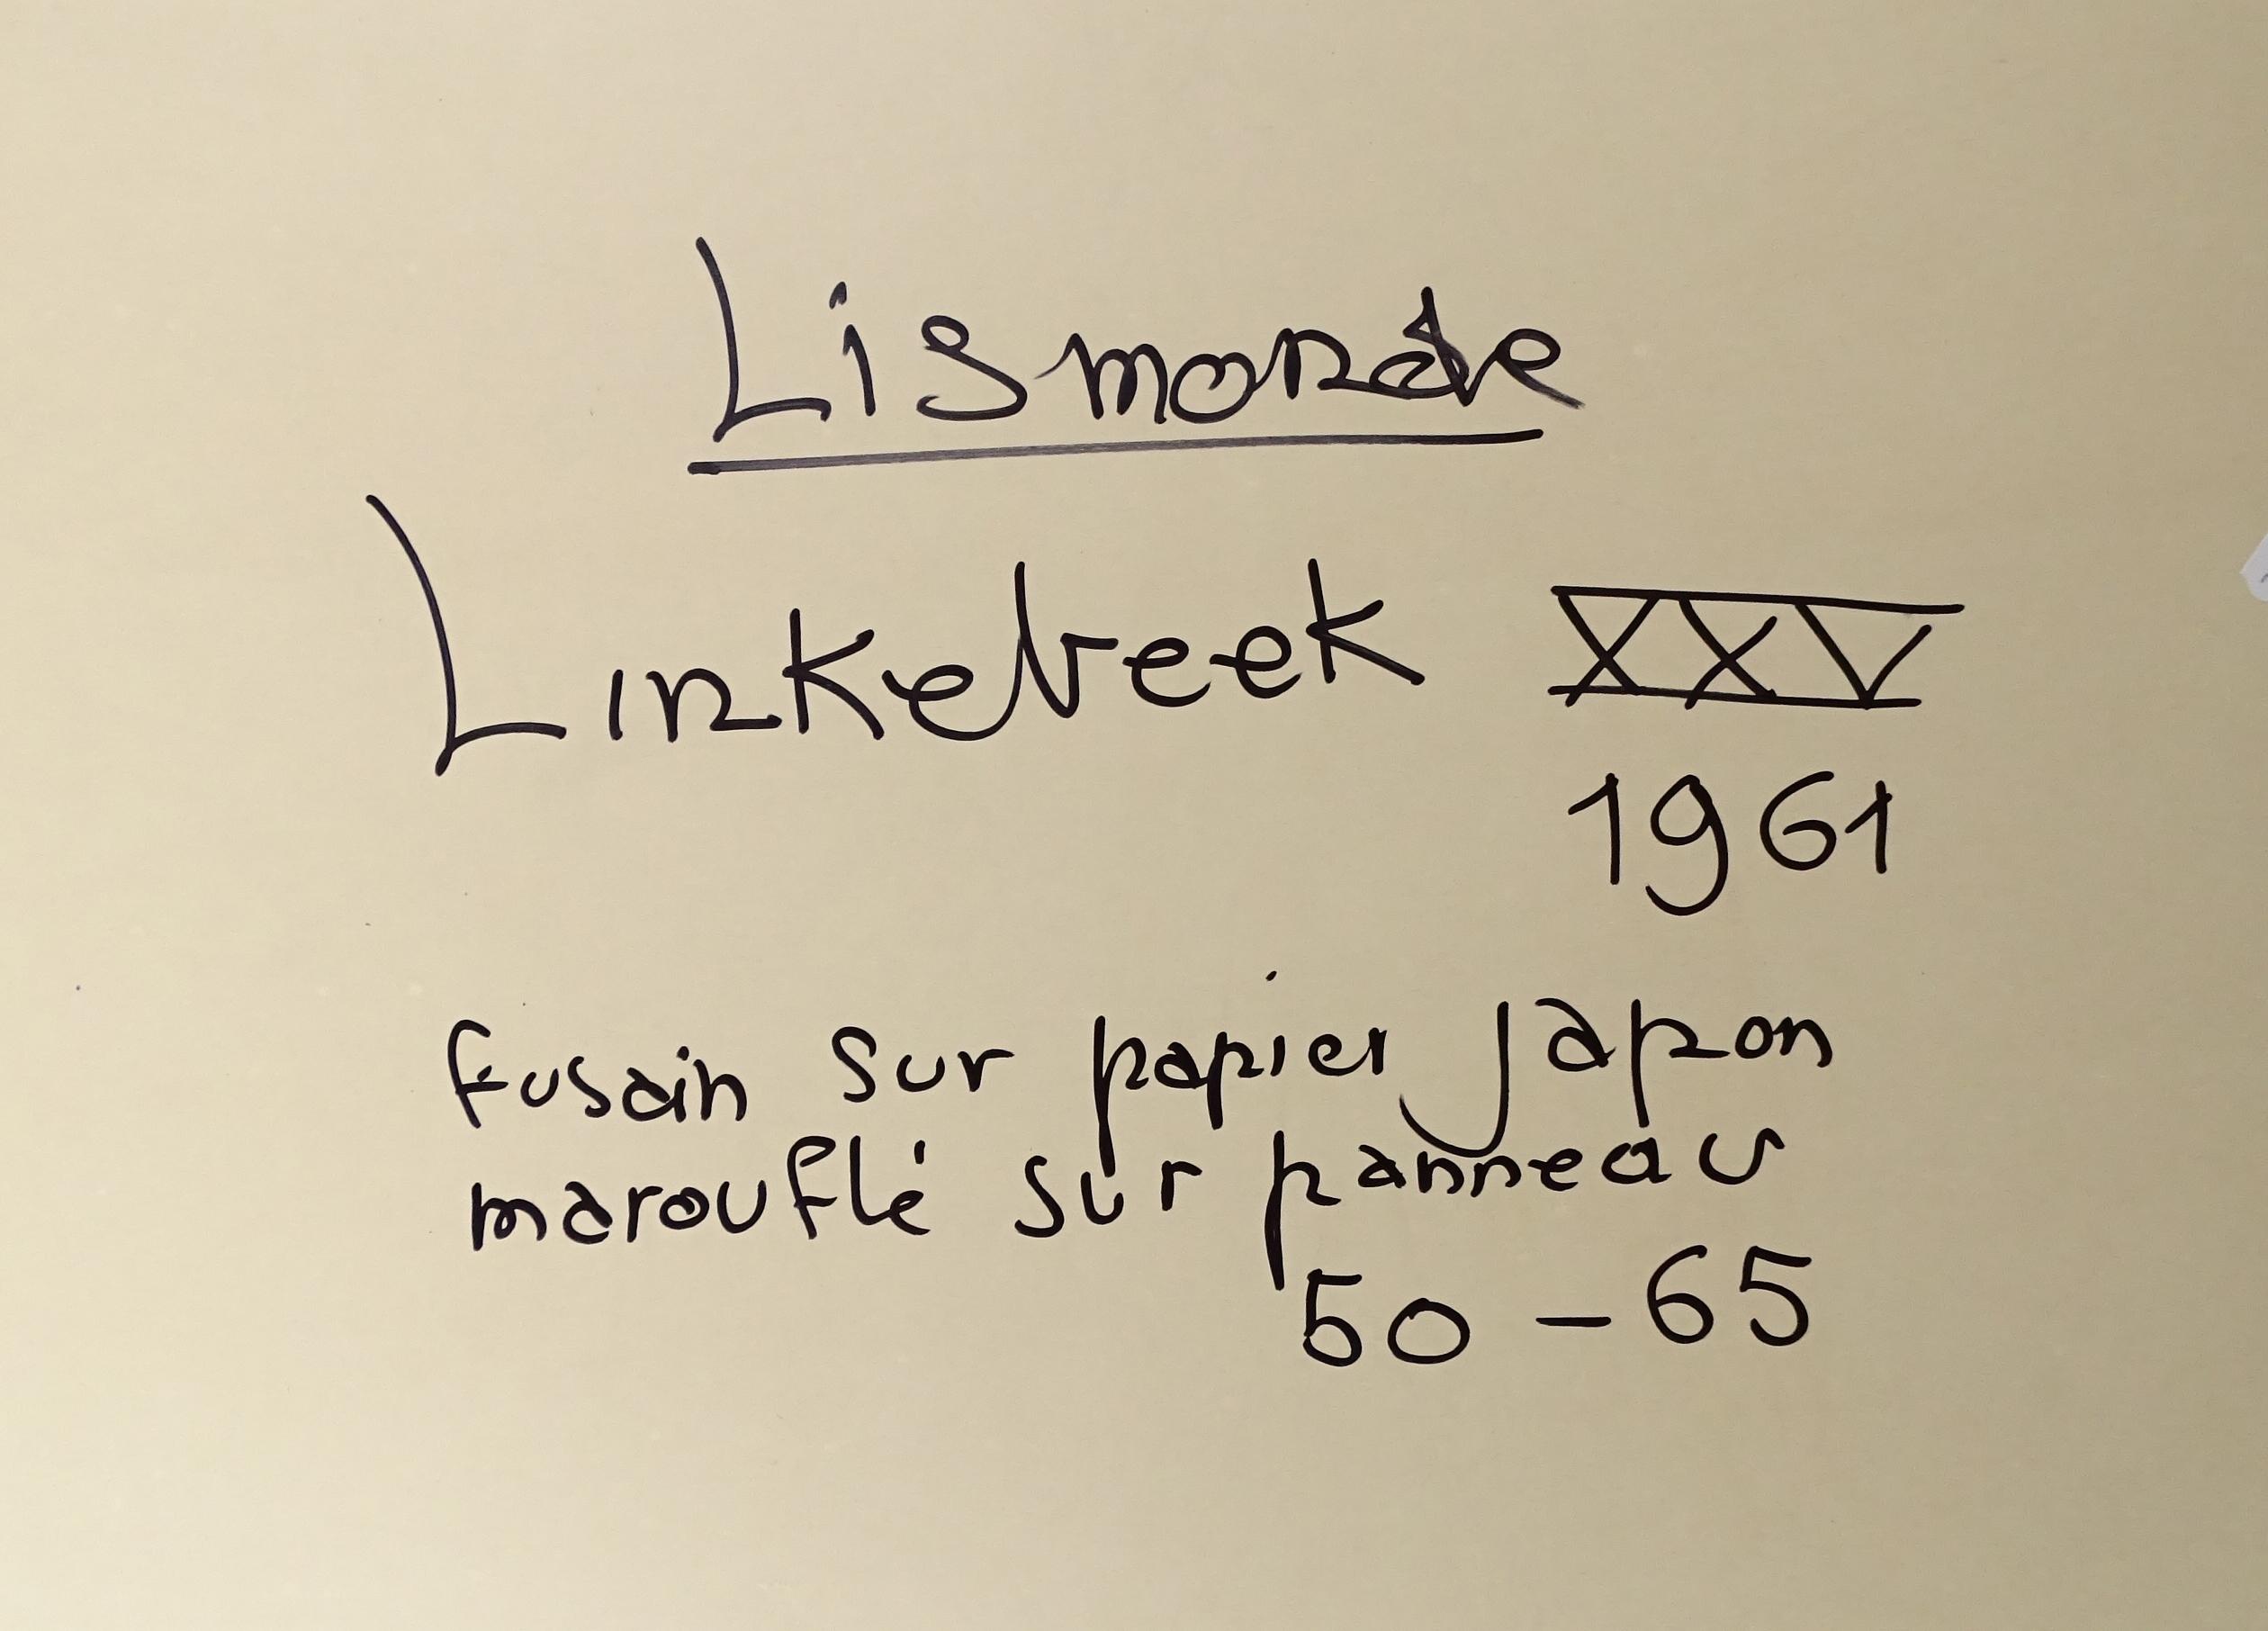 Lismonde
Linkebeek XXV
1961
fusain sur papier Japon
marouflé sur panneau
50 - 65